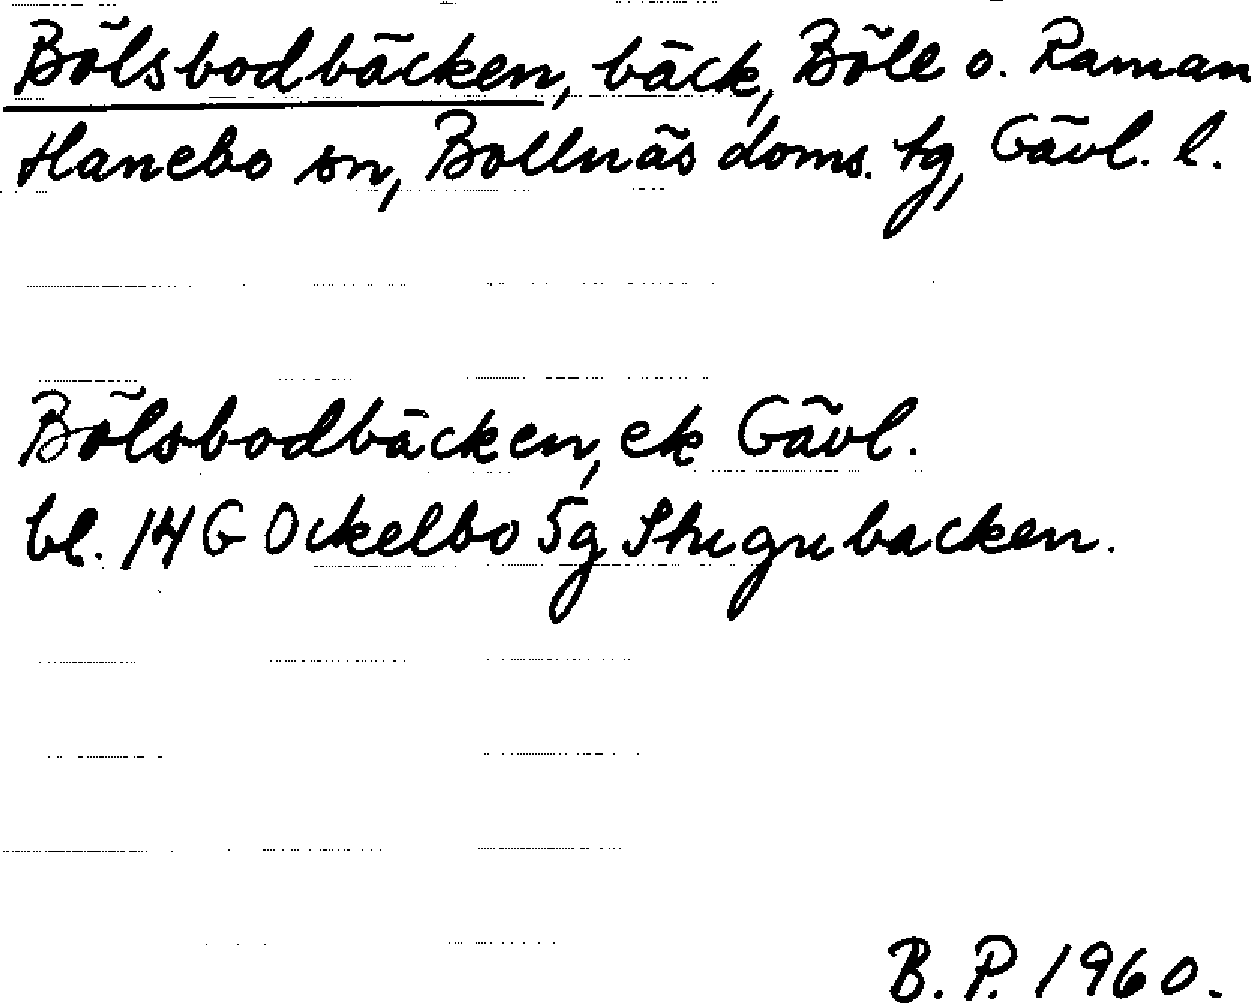 Bölsbodbäcken, bäck, Böle o. Raman
Hanebo sn, Bollnäs doms. tg, Gävl. l.
Bölsbodbäcken, ek Gävl.
bl. 14 G Ockelbo 5g Stugubacken.
B. P. 1960.